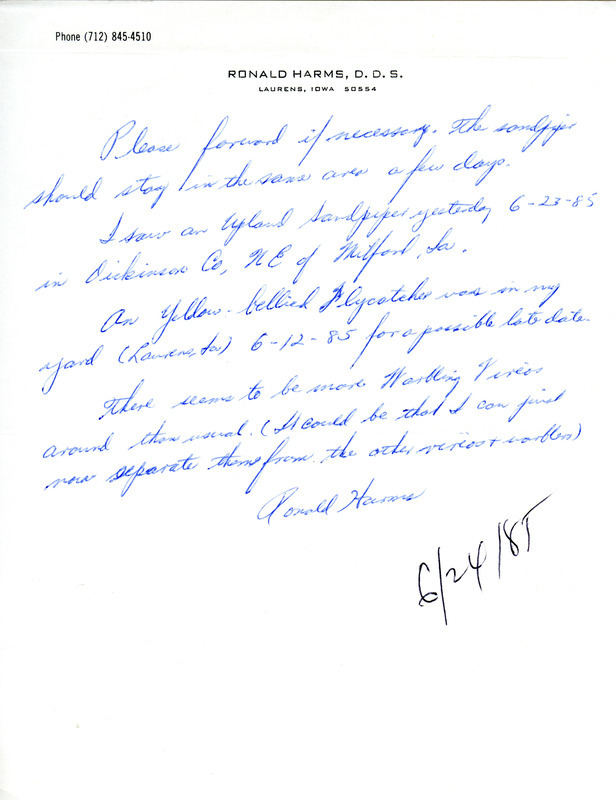 Phone (712) 845-4510
RONALD HARMS, D. D. S.
LAURENS, IOWA 50554
Please forward if necessary. The sandpiper
should stay in the same area a few days.
I saw an Upland Sandpiper yesterday 6-23-85
in Dickinson Co, NE of Milford, Ia.
An Yellow-bellied Flycatcher was in my
yard (Laurens, Ia) 6-12-85 for a possible late date.
There seems to be more Warbling Vireos
around than usual. (It could be that I can just
now separate them from the other vireos + warblers)
Ronald Harms
6/24/85